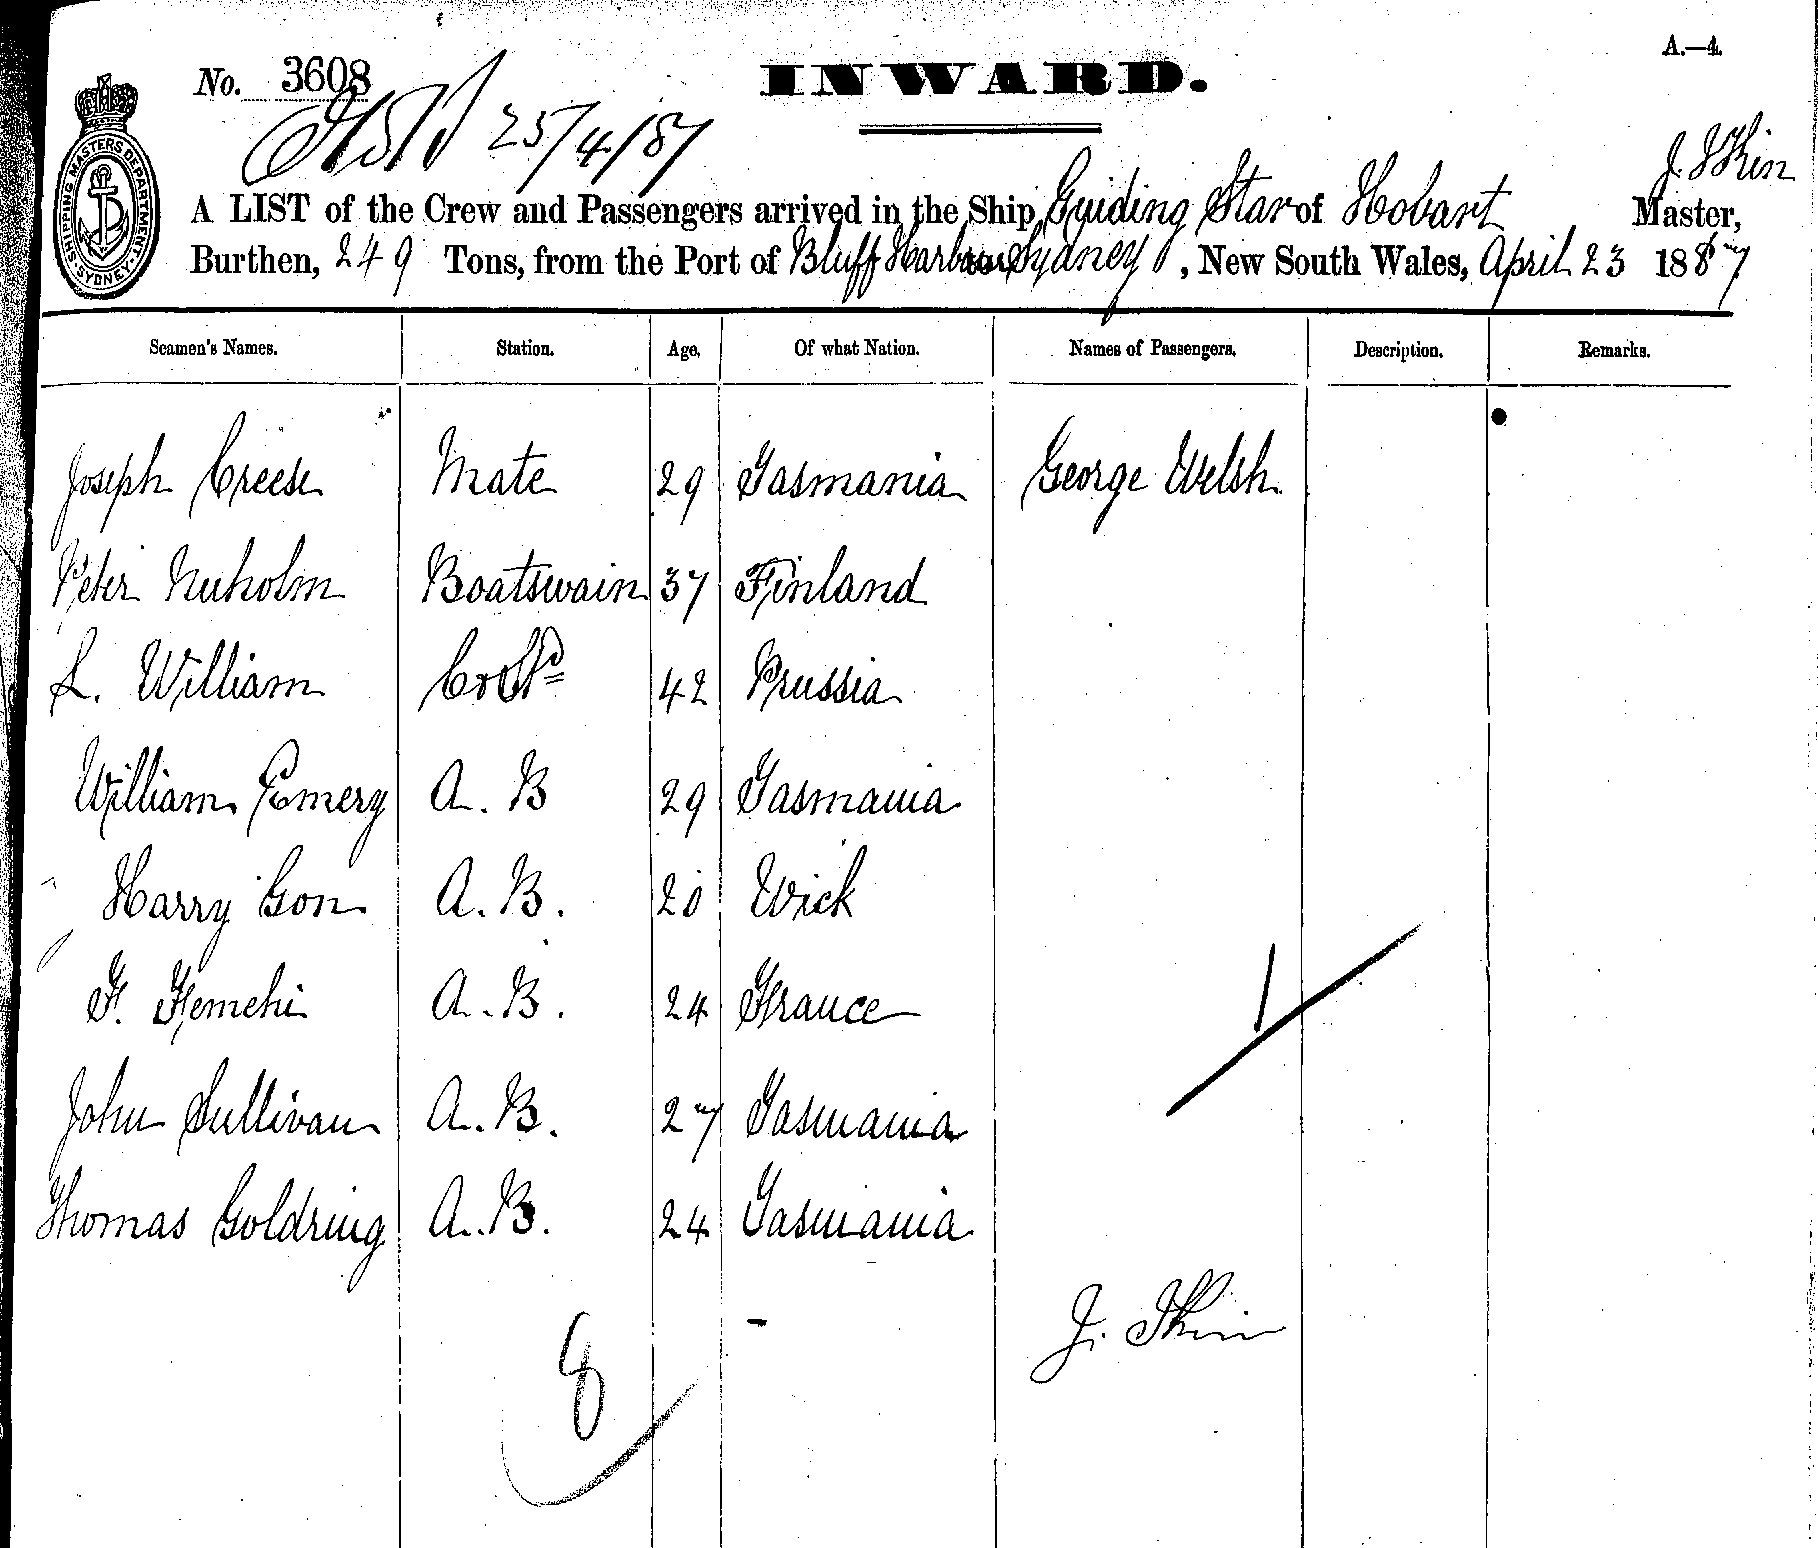 A.—4.
No. 3608
INWARD.
25/4/87
SHIPPING MASTERS DEPARTMENT. SYDNEY.
J. Thin
A LIST of the Crew and Passengers arrived in the Ship Guiding Star of Hobart Master,
Burthen, 249 Tons, from the Port of Bluff Harbour Sydney, New South Wales, April 23 1887
Seamen's Names. Station. Age. Of what Nation. Names of Passengers. Description. Remarks.
Joseph Creese Mate 29 Tasmania George Welsh
Peter Nuholm Boatswain 37 Finland
L. William 42 Prussia
William Emery A. B 29 Tasmania
Harry Gon A. B. 20 Wick
F. A. B. 24 France
John Sullivan A. B. 27 Tasmania
Thomas Goldring A. B. 24 Tasmania
1
J. Thin
8